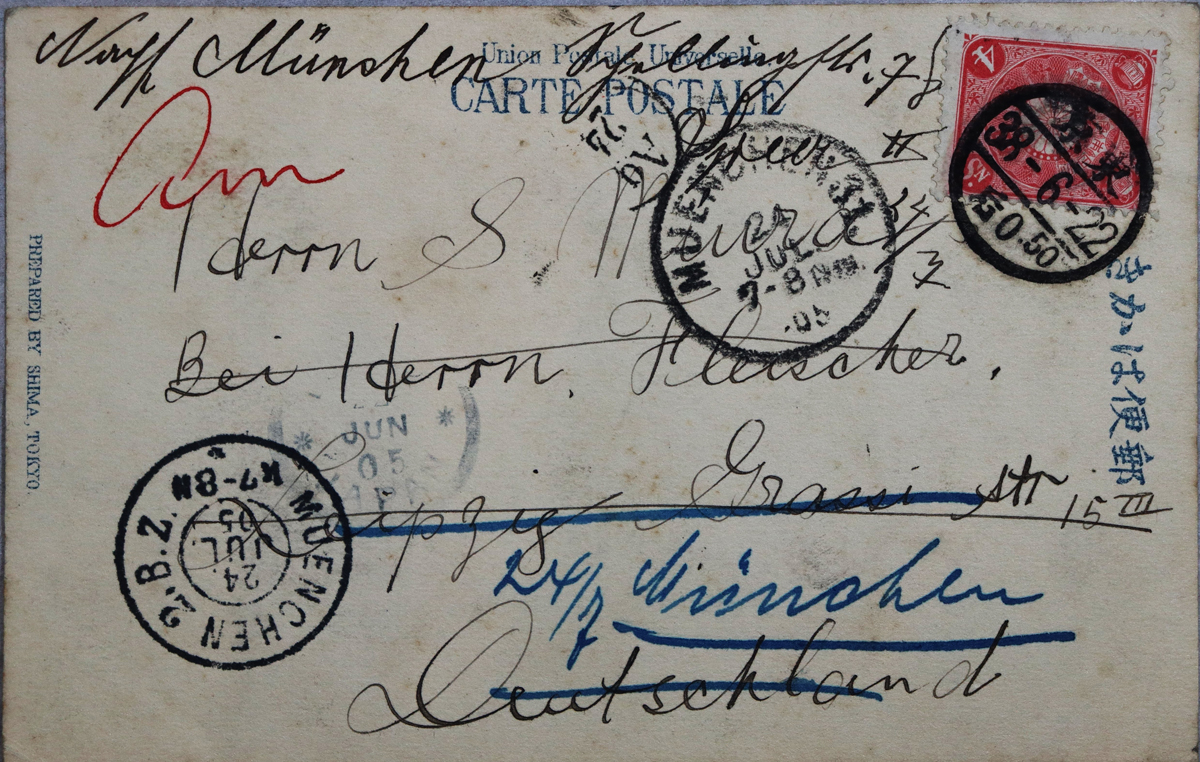 Union Postale Universelle
Nach München Schellingstr. 78
CARTE POSTALE
A6
II
Herrn S
24/7
Bei Herrn Fleischer.
Leipzig Grassi str 15 III
24/7 München
Deutschland
4
東京
38-6-22
后 0.50
MUENCHEN 31.
24
JUL.
7-8 Nm.
.05
JUN
05
MUENCHEN 2.B.Z.
24.
JUL.
05
K7-8N
郵便はがき
PREPARED BY SHIMA, TOKYO.